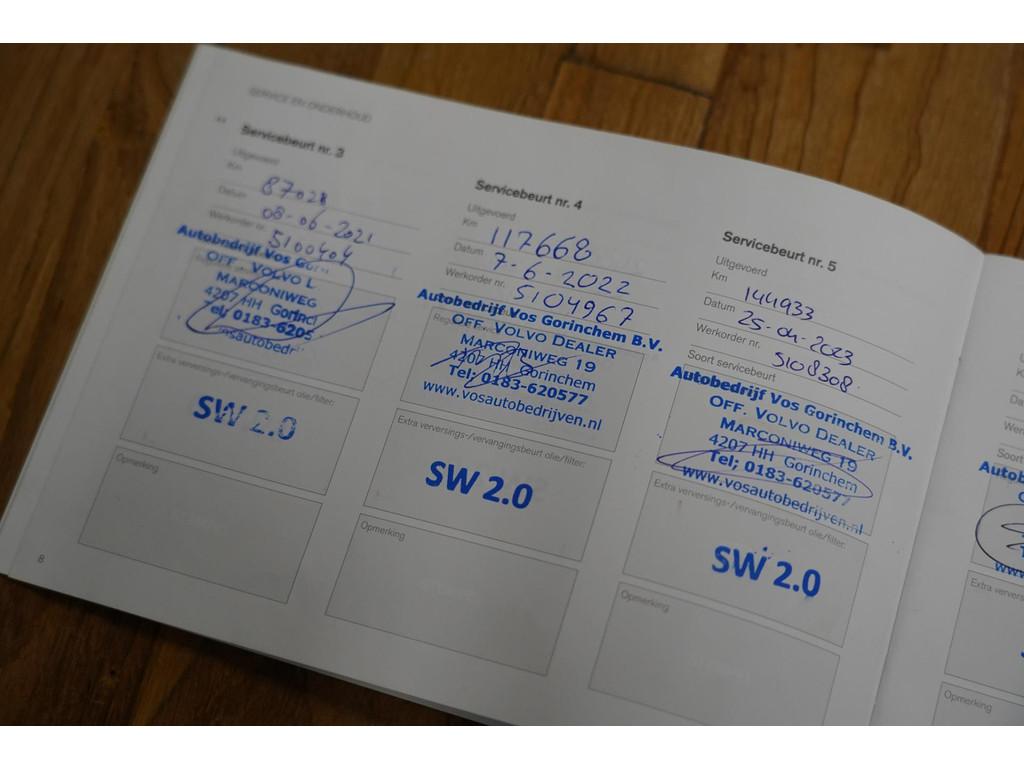 SERVICE EN ONDERHOUD
Servicebeurt nr. 3
Uitgevoerd
Km 87028
Datum 08-06-2021
Werkorder nr. 5100404
Autobedrijf Vos Gorin
OFF. VOLVO
MARCONIWEG
4207 HH Gorinc
Tel; 0183-6205
vosautobedr
Extra verversings-/vervangingsbeurt olie/filter:
SW 2.0
Opmerking
8
Servicebeurt nr. 4
Uitgevoerd
Km 117668
Datum 7-6-2022
Werkorder nr. 5104967
Autobedrijf Vos Gorinchem B.V.
OFF. VOLVO DEALER
MARCONIWEG 19
4207 HH Gorinchem
Tel; 0183-620577
www.vosautobedrijven.nl
Extra verversings-/vervangingsbeurt olie/filter:
SW 2.0
Opmerking
Servicebeurt nr. 5
Uitgevoerd
Km 144933
Datum 25-04-2023
Werkorder nr. 5108308
Soort servicebeurt
Autobedrijf Vos Gorinchem B.V.
OFF. VOLVO DEALER
MARCONIWEG 19
4207 HH Gorinchem
Tel; 0183-620577
www.vosautobedrijven.nl
Extra verversings-/vervangingsbeurt olie/filter:
SW 2.0
Opmerking
Soort
Autob
www
Extra ververs
Opmerking